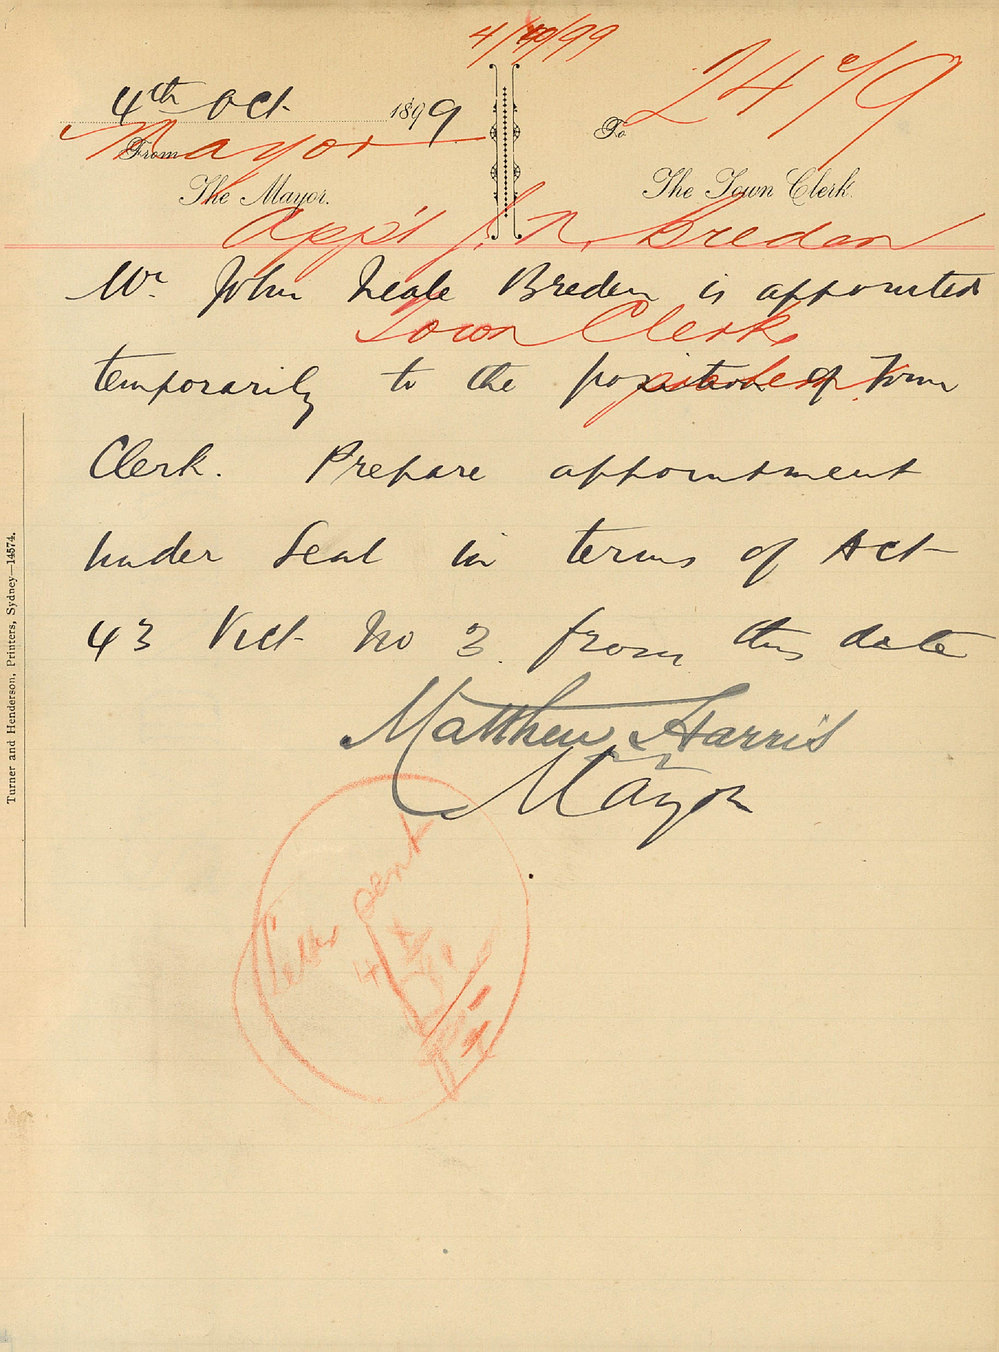 4/10/99
2479
4th Oct 1899
Mayor
From To
The Mayor. The Town Clerk.
app's J. N. Bredon
Mr. John Neale Breden is appointed
Town Clerk
temporarily to the position of Town
Clerk. Prepare appointment
under Seal in terms of Act
43 Vict No 3. from this date
Matthew Harris
Mayor
Letter sent
4
Turner and Henderson, Printers, Sydney—14574.